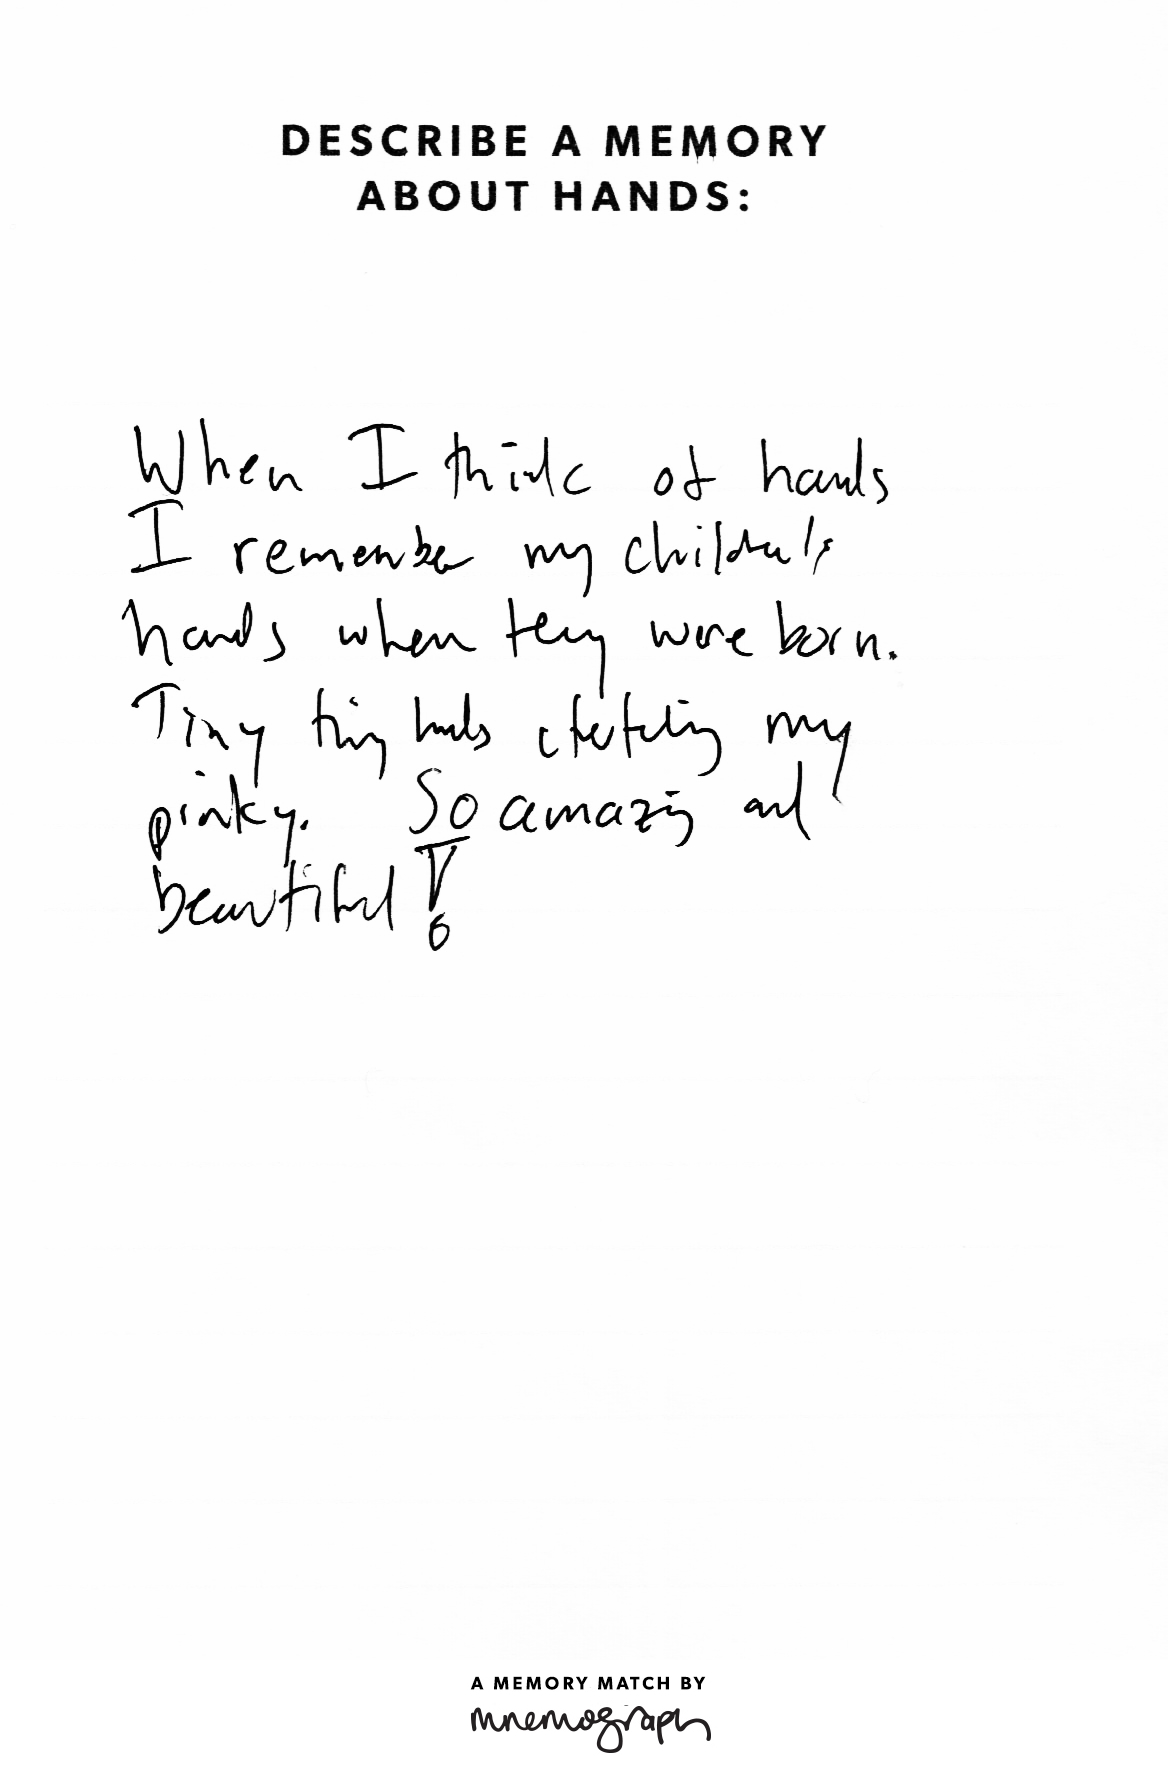 DESCRIBE A MEMORY
ABOUT HANDS:
When I think of hands
I remember my children's
hands when they were born.
Tiny tiny hands clutching my
pinky. So amazing and
beautiful!
A MEMORY MATCH BY
mnemograph